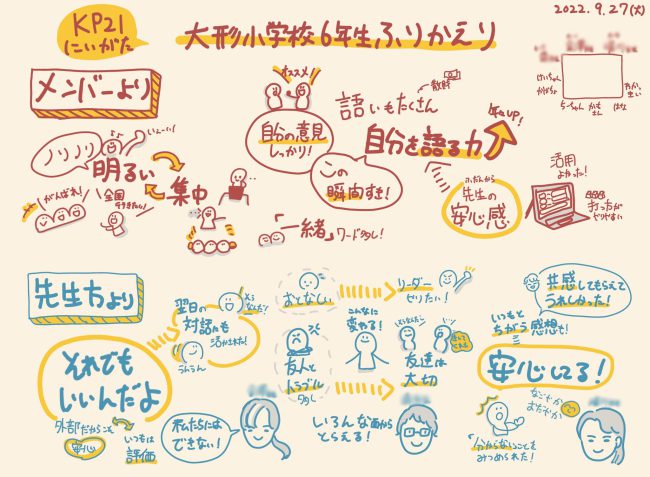 KP21
にいがた
大形小学校6年生ふりかえり
2022.9.27(火)
メンバーより
ノリノリ
いぇーい!
明るい
集中
がんばれ!
全国
行きたい!
オススメ!
自分の意見
しっかり!
語いもたくさん
この
瞬間すき!
「一緒」ワード多し!
自分を語る力
年々UP!
ふだんから
先生の
安心感
活用
よかった!
打つ方が
やりやすい
ちーちゃん
かも
さん
はな
先生方より
それでも
いいんだよ
外部だからこそ
安心
いつもは
評価
翌日の
対話にも
活かされた!
そう
なんだ!
うんうん
おとなしい
リーダー
やりたい!
友人と
トラブル
多し
こんなに
変わる!
友達は
大切
私たちには
できない!
いろんな面から
とらえる!
共感してもらえて
うれしかった!
いつもと
ちがう感想も!
安心してる!
なごやか
おだやか
「分からない」ことを
みつめられた!